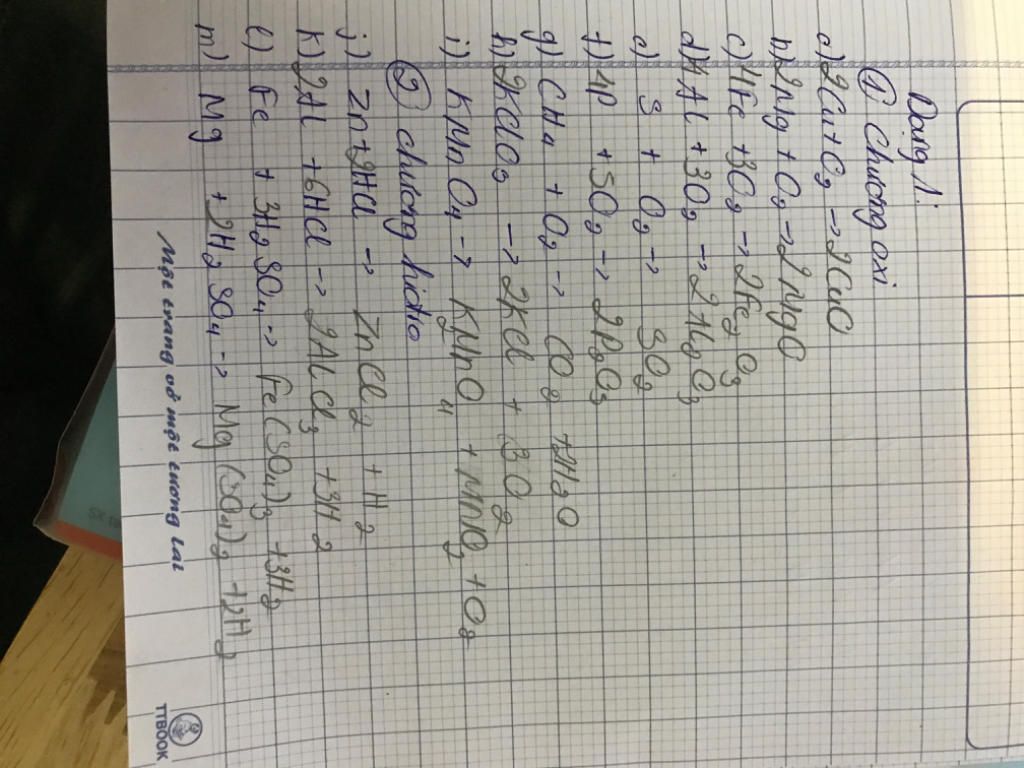 Dạng 1:
① Chương oxi
a) 2Cu + O₂ -> 2CuO
b) 2Mg + O₂ -> 2MgO
c) 4Fe + 3O₂ -> 2Fe₂O₃
d) 4Al + 3O₂ -> 2Al₂O₃
e) S + O₂ -> SO₂
f) 4P + 5O₂ -> 2P₂O₅
g) CH₄ + O₂ -> CO₂ + 2H₂O
h) 2KClO₃ -> 2KCl + 3O₂
i) KMnO₄ -> K₂MnO₄ + MnO₂ + O₂
② chương hidro
j) Zn + 2HCl -> ZnCl₂ + H₂
k) 2Al + 6HCl -> 2AlCl₃ + 3H₂
l) Fe + 3H₂SO₄ -> Fe(SO₄)₃ + 3H₂
m) Mg + 2H₂SO₄ -> Mg(SO₄)₂ + 2H₂
Một trang vở một tương lai
TTBOOK